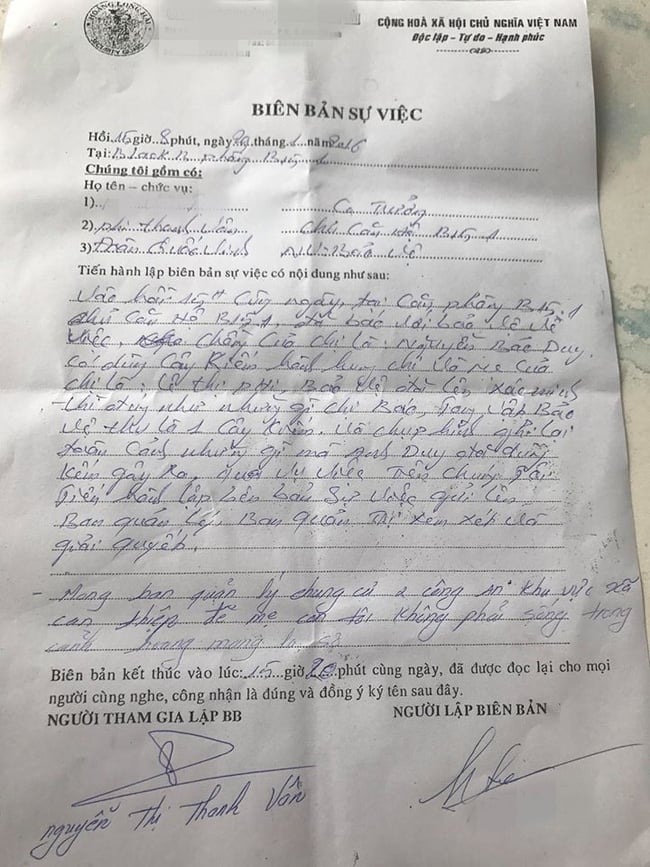 HOÀNG LONG HẢI
SECURITY GUARD
CỘNG HOÀ XÃ HỘI CHỦ NGHĨA VIỆT NAM
Độc lập – Tự do – Hạnh phúc
BIÊN BẢN SỰ VIỆC
Hồi 15 giờ 8 phút, ngày tháng 1 năm
Tại: Block B phòng
Chúng tôi gồm có:
Họ tên – chức vụ:
1) Ca Trưởng
2) Thanh Vân Chủ Căn Hộ
3) Trần Quốc Bảo Vệ
Tiến hành lập biên bản sự việc có nội dung như sau:
Vào hồi cùng ngày, tại Căn phòng
chủ Căn Hộ báo với bảo vệ về
việc, chồng của chị là: Nguyễn Bảo Duy,
có dùng Cây Kiếm hành hung chị và mẹ của
chị là: Lê thị Bảo Vệ đã lên xác minh
thì đúng như những gì chị Báo, Bảo
Vệ thu là 1 Cây Kiếm. Và chụp hình ghi lại
toàn Cảnh những gì mà Anh Duy đã dùng
Kiếm gây Ra, vụ việc Trên chúng Tôi
Tiến hành lập biên bản Sự việc gửi lên
Ban quản lý, Ban quản Trị xem xét và
giải quyết.
- Mong ban quản lý chung cư & công an khu vực
can thiệp để mẹ con tôi không phải sống trong
cảnh hoang mang lo sợ
Biên bản kết thúc vào lúc: 15 giờ 20 phút cùng ngày, đã được đọc lại cho mọi
người cùng nghe, công nhận là đúng và đồng ý ký tên sau đây.
NGƯỜI THAM GIA LẬP BB NGƯỜI LẬP BIÊN BẢN
nguyễn Thị Thanh Vân